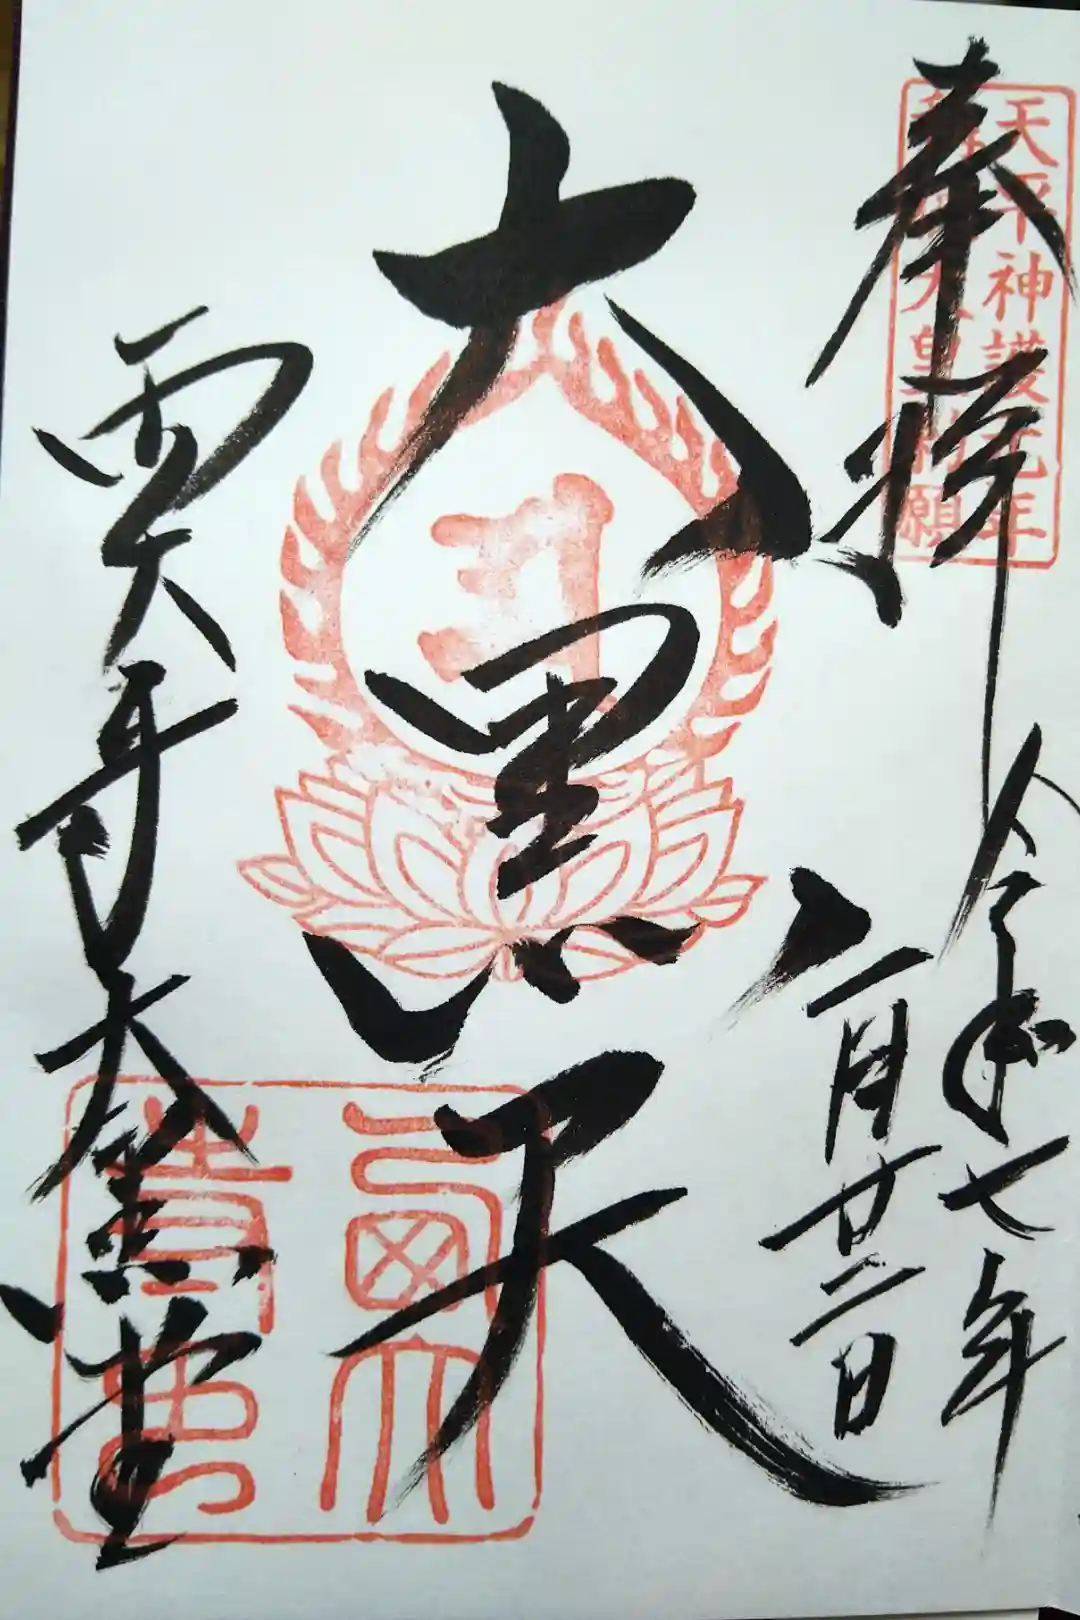 奉拝
天平神護元年
称徳天皇勅願
令和七年
一月廿二日
大黒天
西大寺大黒堂